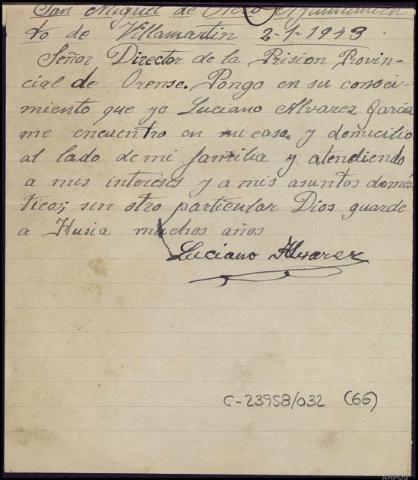 San Miguel de Ayuntamien
to de Villamartin 2-1-1943.
Señor Director de la Prision Provin-
cial de Orense. Pongo en su conoci-
miento que yo Luciano Alvarez Garcia
me encuentro en mi casa y domicilio
al lado de mi familia y atendiendo
a mis intereses y a mis asuntos domés
ticos; sin otro particular Dios guarde
a Husia muchos años
Luciano Alvarez
C-23958/032 (66)